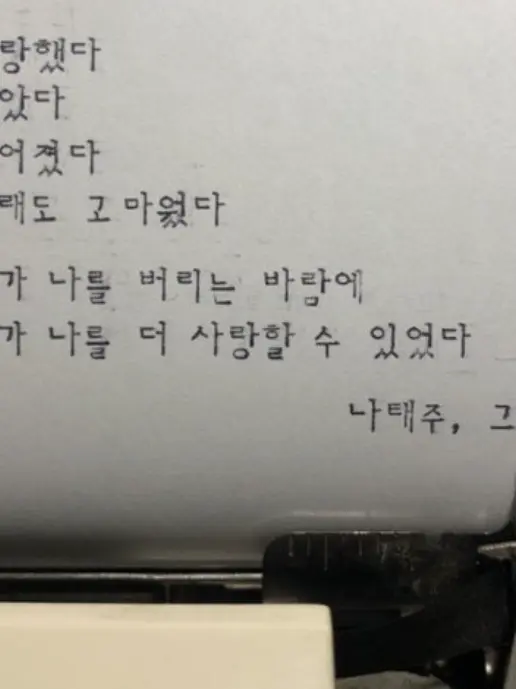 랑했다
았다
어졌다
래도 고마웠다
가 나를 버리는 바람에
가 나를 더 사랑할 수 있었다
나태주, 그